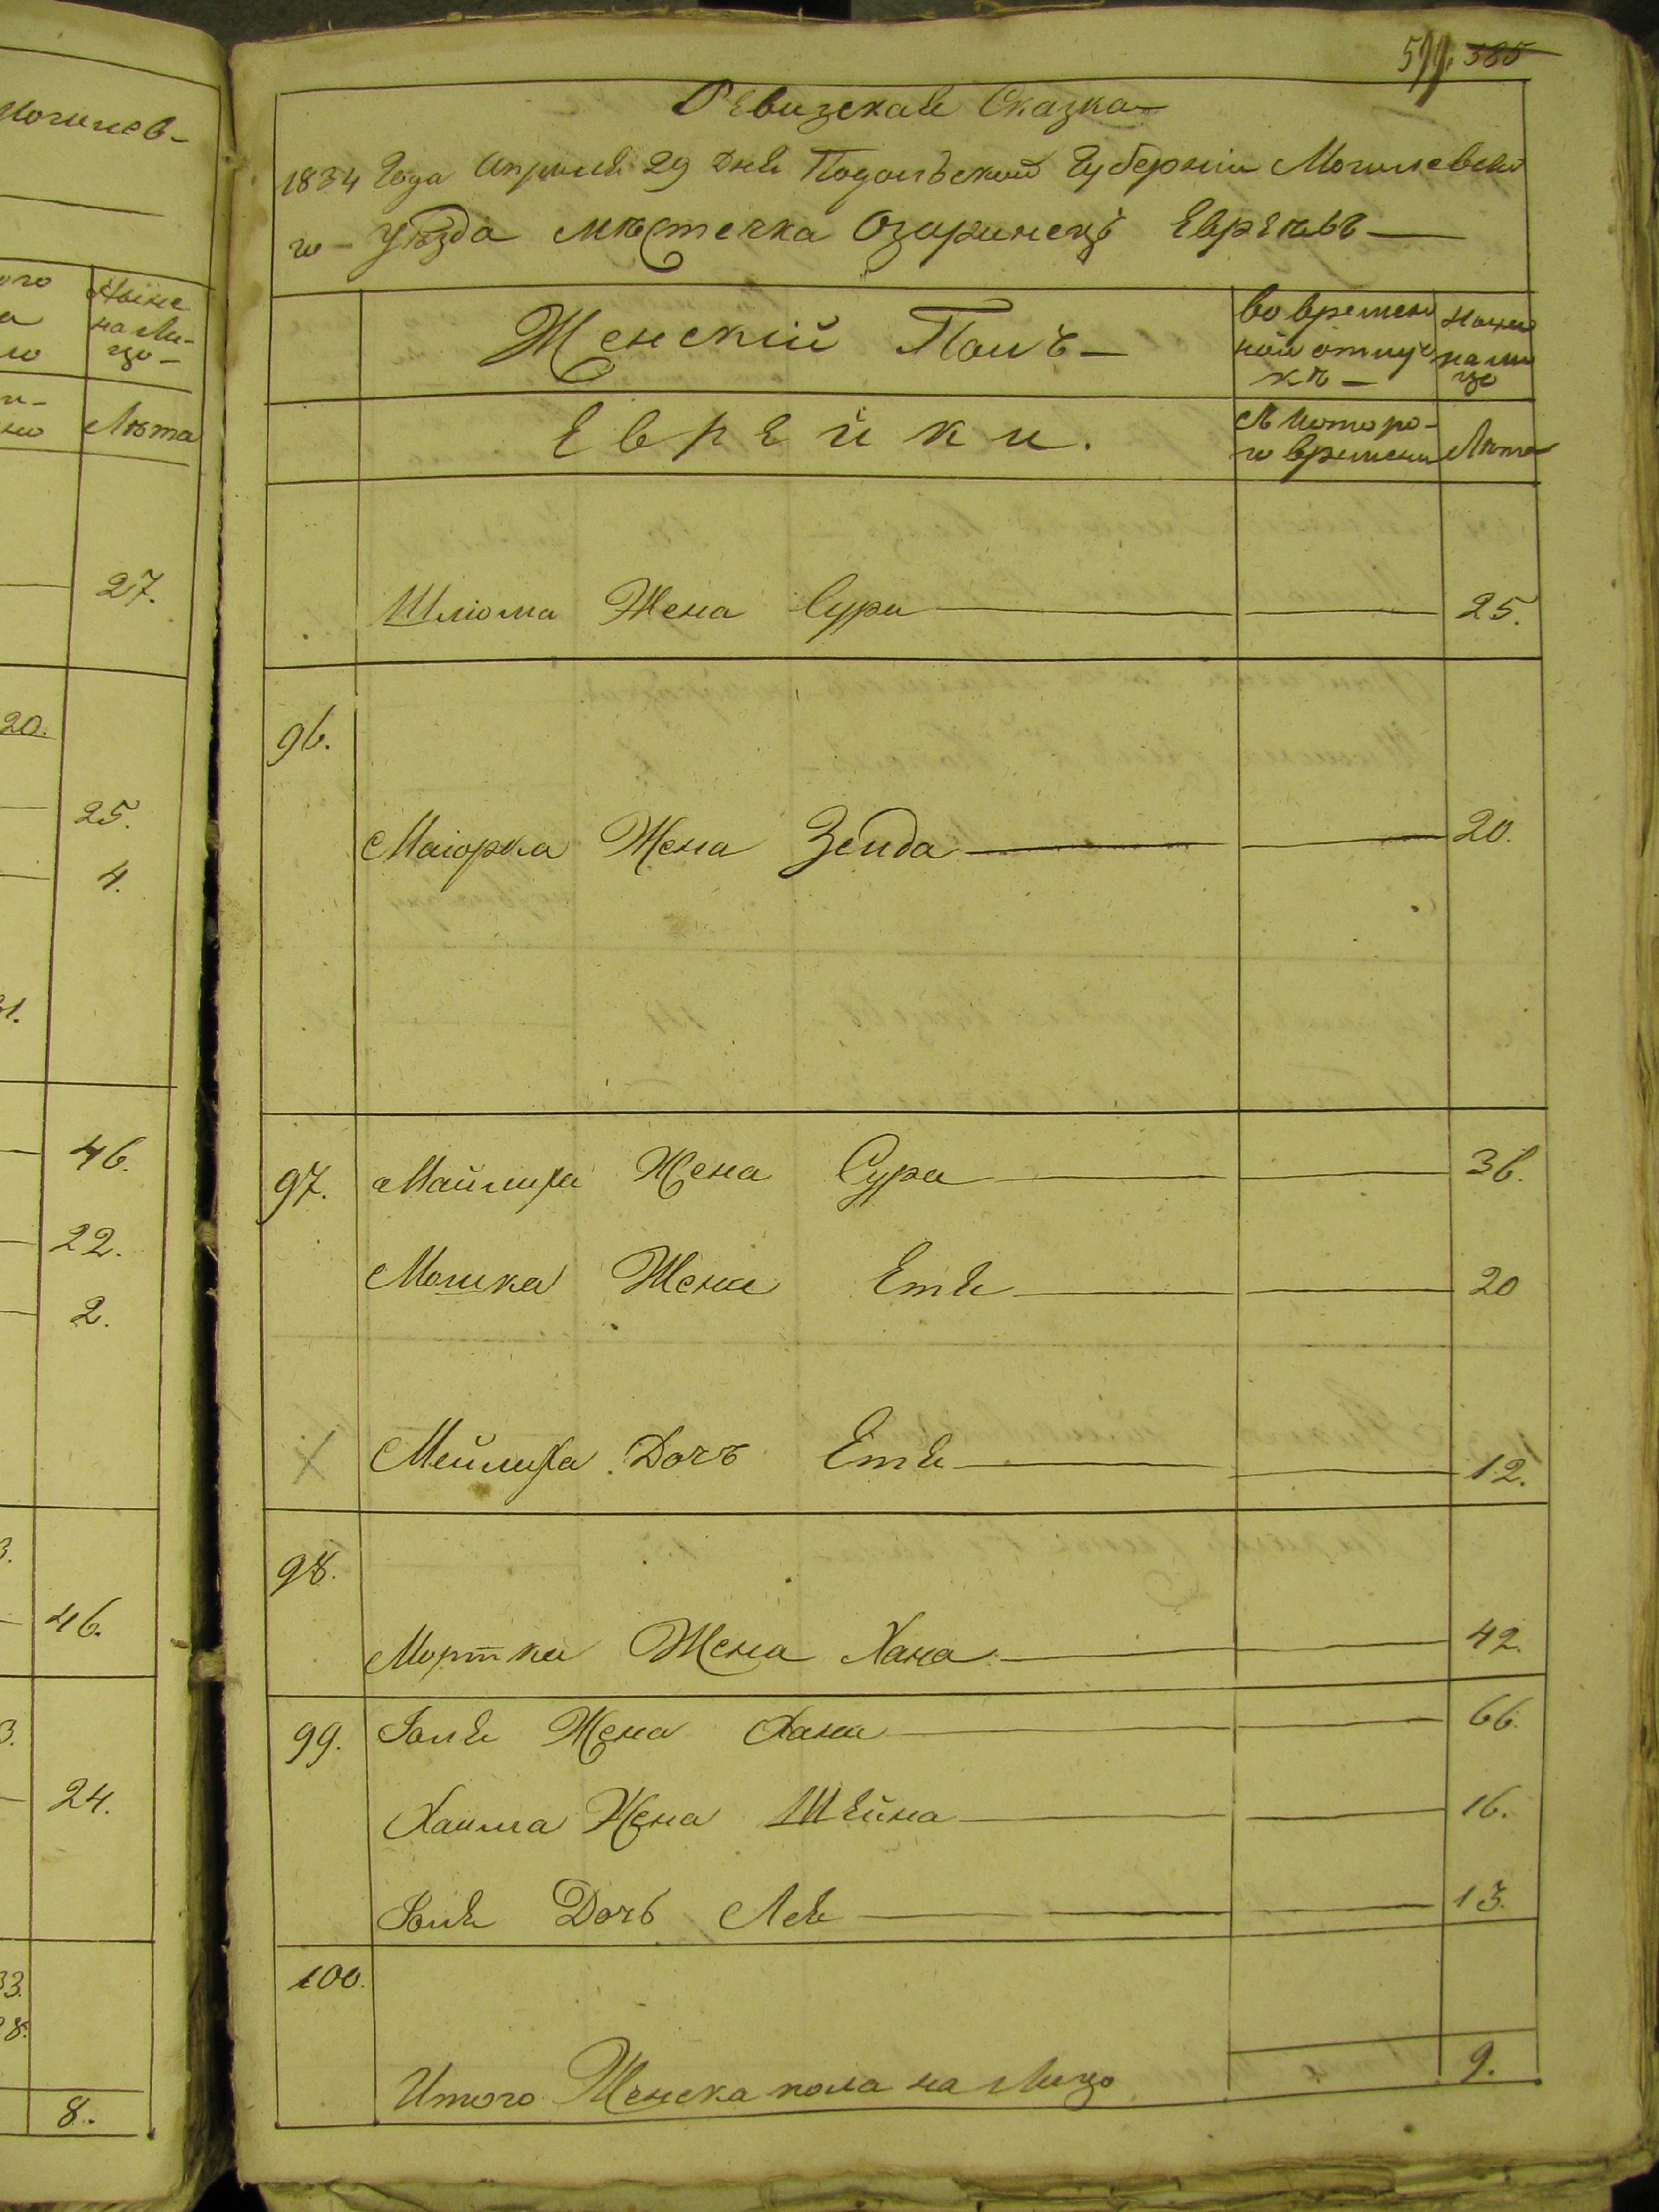 Могилев-
Ныне
на Ли-
цо-
Лѣта
27.
20.
25.
4.
46.
22.
2.
46.
24.
8.
599. 385
Ревизская Сказка
1834 Года Апреля 29 Дня Подольской Губерніи Могилевско
го Уѣзда мѣстечка Озаринецъ Евреевъ
Женскій Полъ
во времен
ной отлуч
кѣ
Ныне
на ли
цо
Еврейки.
Съ которо-
го времени
Лѣта
Шлiома Жена Сура 25.
96.
Маiорка Жена Зейда 20.
97. Жена Сура 36.
Мошка Жена Етя 20
Х Дочъ Етя 12.
98.
Мортка Жена Хана 42.
99. Жена Хана 66.
Хаима Жена Шейна 16.
Дочь Лея 13.
100.
Итого Женска пола на Лицо 9.